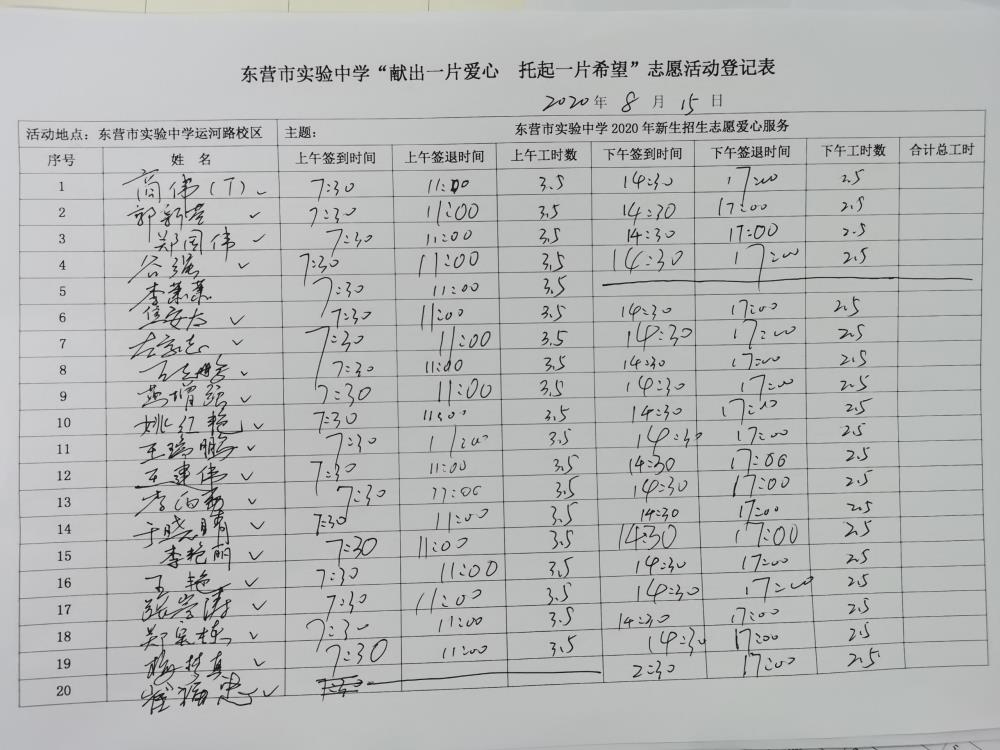 东营市实验中学“献出一片爱心 托起一片希望”志愿活动登记表
2020年 8 月 15 日
活动地点：东营市实验中学运河路校区 主题： 东营市实验中学2020年新生招生志愿爱心服务
序号 姓 名 上午签到时间 上午签退时间 上午工时数 下午签到时间 下午签退时间 下午工时数 合计总工时
1 高伟(T) ✓ 7:30 11:00 3.5 14:30 17:00 2.5
2 郭新营 ✓ 7:30 11:00 3.5 14:30 17:00 2.5
3 郑国伟 ✓ 7:30 11:00 3.5 14:30 17:00 2.5
4 谷强 ✓ 7:30 11:00 3.5 14:30 17:00 2.5
5 李 7:30 11:00 3.5
6 ✓ 7:30 11:00 3.5 14:30 17:00 2.5
7 左 ✓ 7:30 11:00 3.5 14:30 17:00 2.5
8 ✓ 7:30 11:00 3.5 14:30 17:00 2.5
9 燕增强 ✓ 7:30 11:00 3.5 14:30 17:00 2.5
10 姚红艳 ✓ 7:30 11:00 3.5 14:30 17:00 2.5
11 王瑞鹏 ✓ 7:30 11:00 3.5 14:30 17:00 2.5
12 王建伟 ✓ 7:30 11:00 3.5 14:30 17:00 2.5
13 李 ✓ 7:30 11:00 3.5 14:30 17:00 2.5
14 于晓晴 ✓ 7:30 11:00 3.5 14:30 17:00 2.5
15 李艳丽 ✓ 7:30 11:00 3.5 14:30 17:00 2.5
16 王艳 ✓ 7:30 11:00 3.5 14:30 17:00 2.5
17 张崇涛 ✓ 7:30 11:00 3.5 14:30 17:00 2.5
18 郑 ✓ 7:30 11:00 3.5 14:30 17:00 2.5
19 ✓ 7:30 11:00 3.5 14:30 17:00 2.5
20 崔福忠 ✓ 7:30 2:30 17:00 2.5